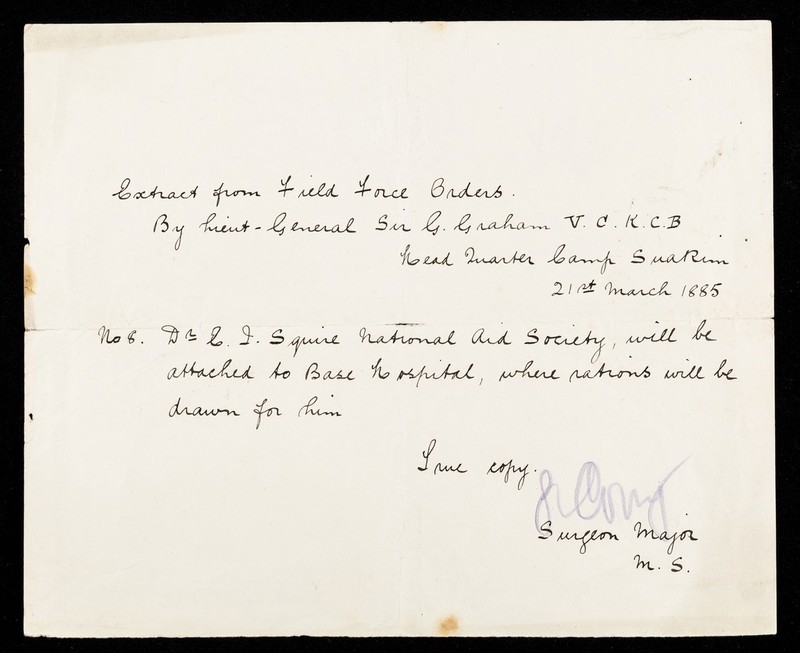 Extract from Field Force Orders.
By Lieut-General Sir G. Graham V.C. K.C.B
Head Quarter Camp Suakim
21st March 1885
No 8. Dr E. J. Squire National Aid Society, will be
attached to Base Hospital, where rations will be
drawn for him
True copy.
Surgeon Major
M. S.